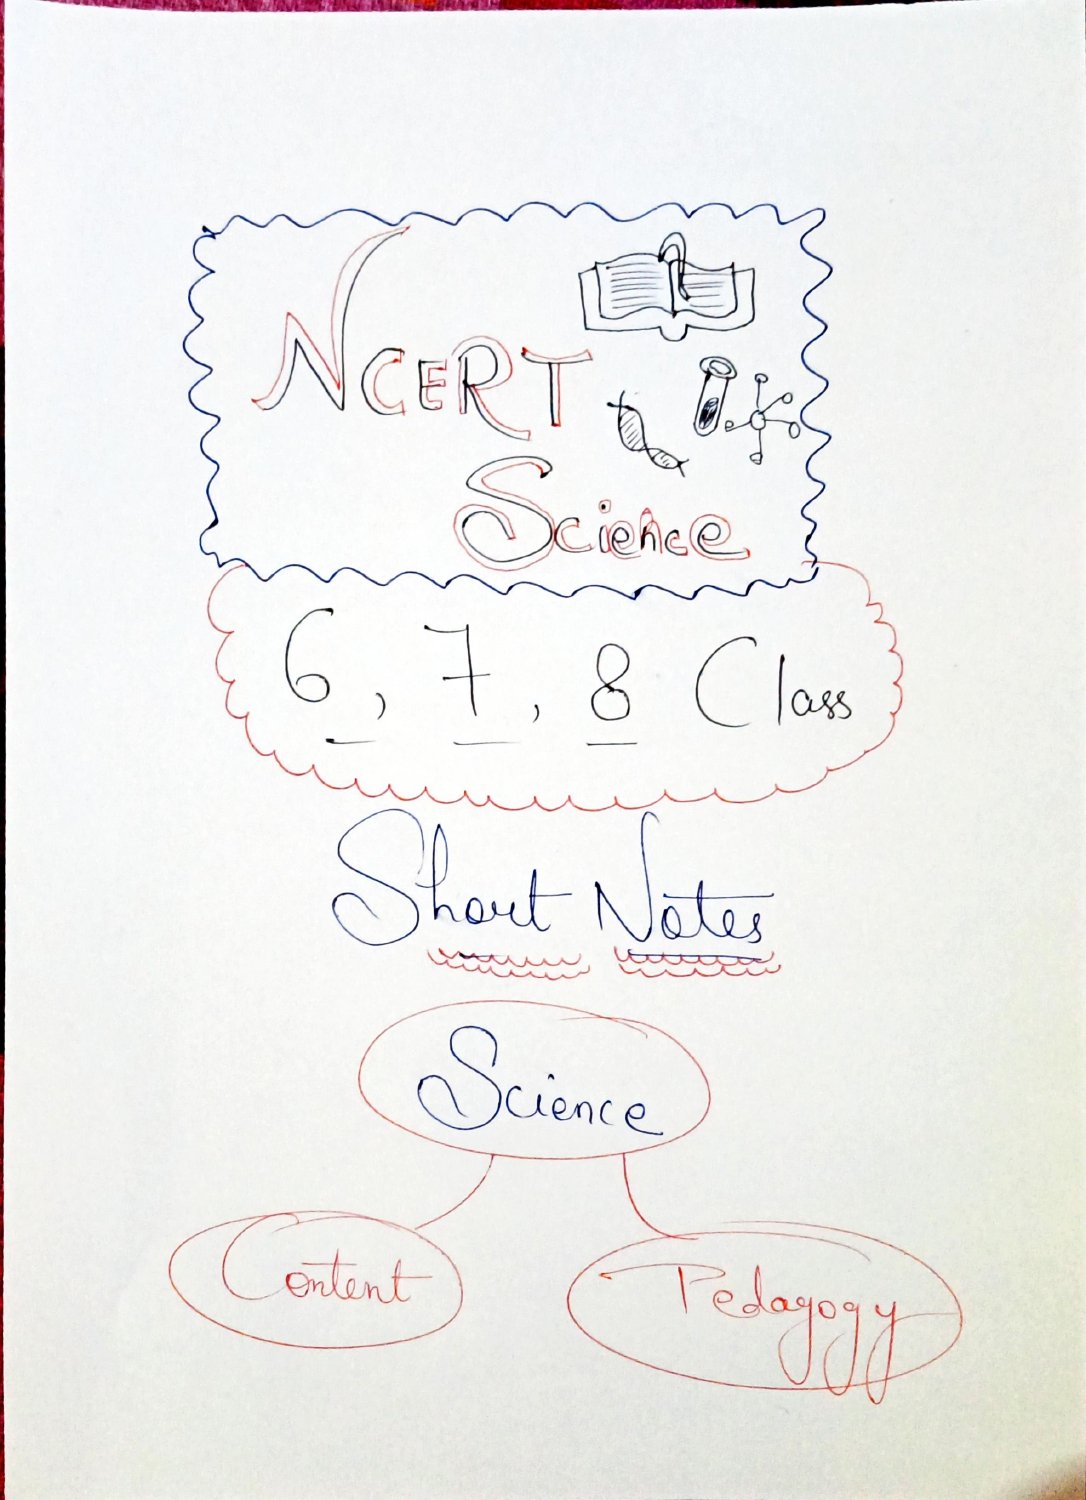 NCERT
Science
6, 7, 8 Class
Short Notes
Science
Content Pedagogy